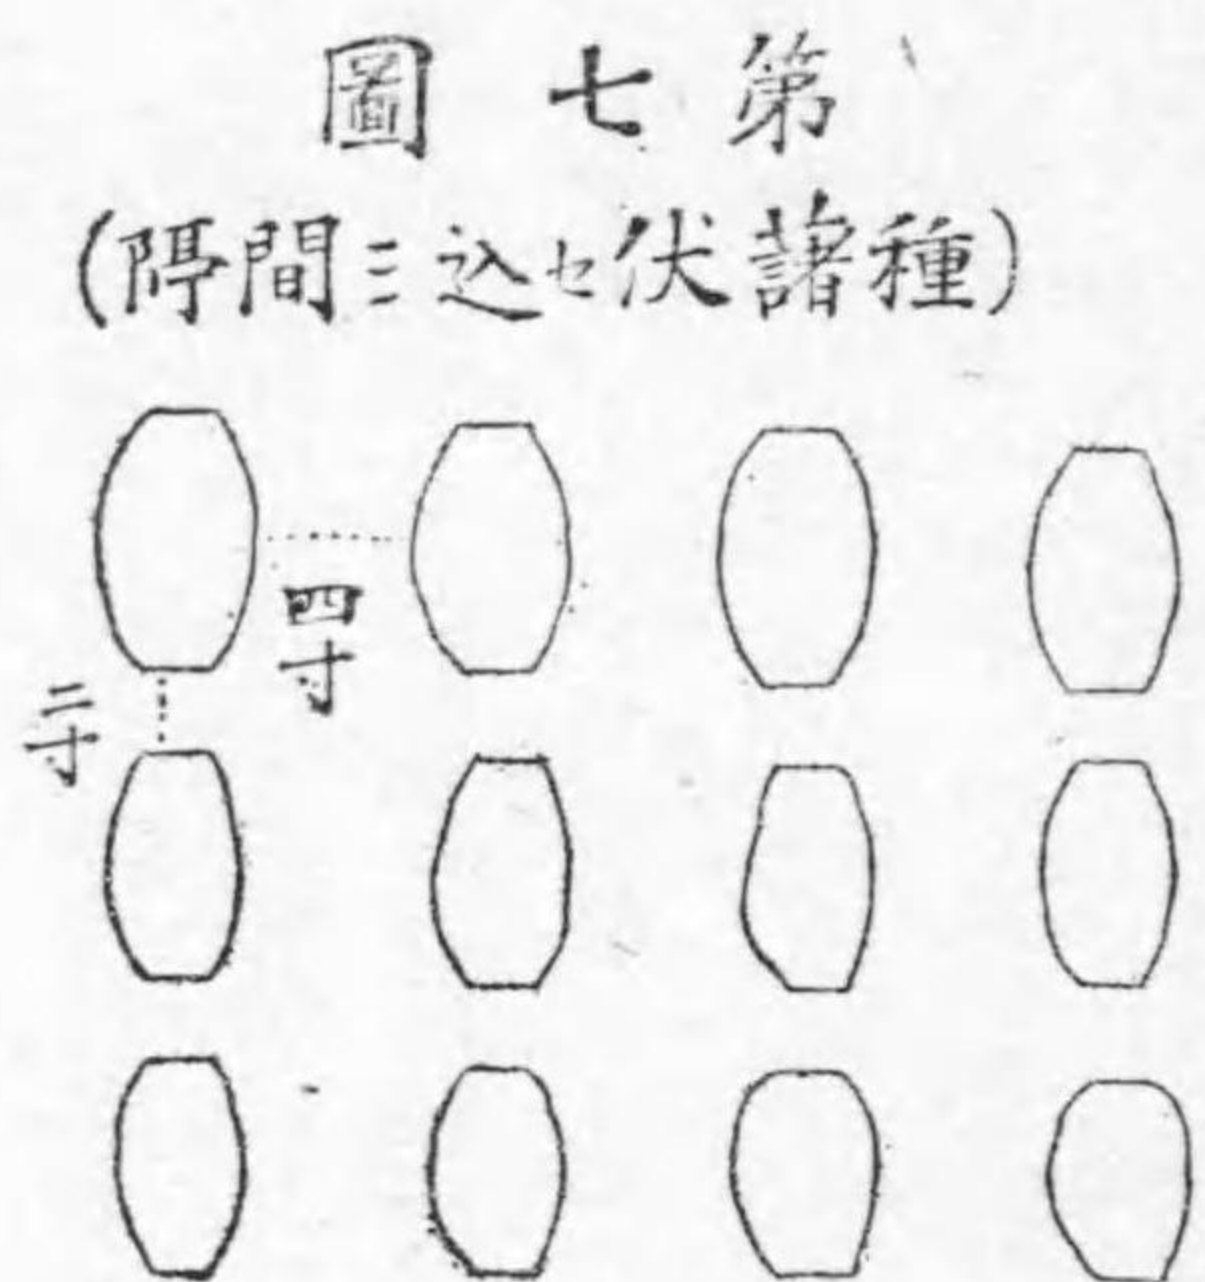 第七圖
(種藷伏セ込ミ間隔)
四寸
二寸